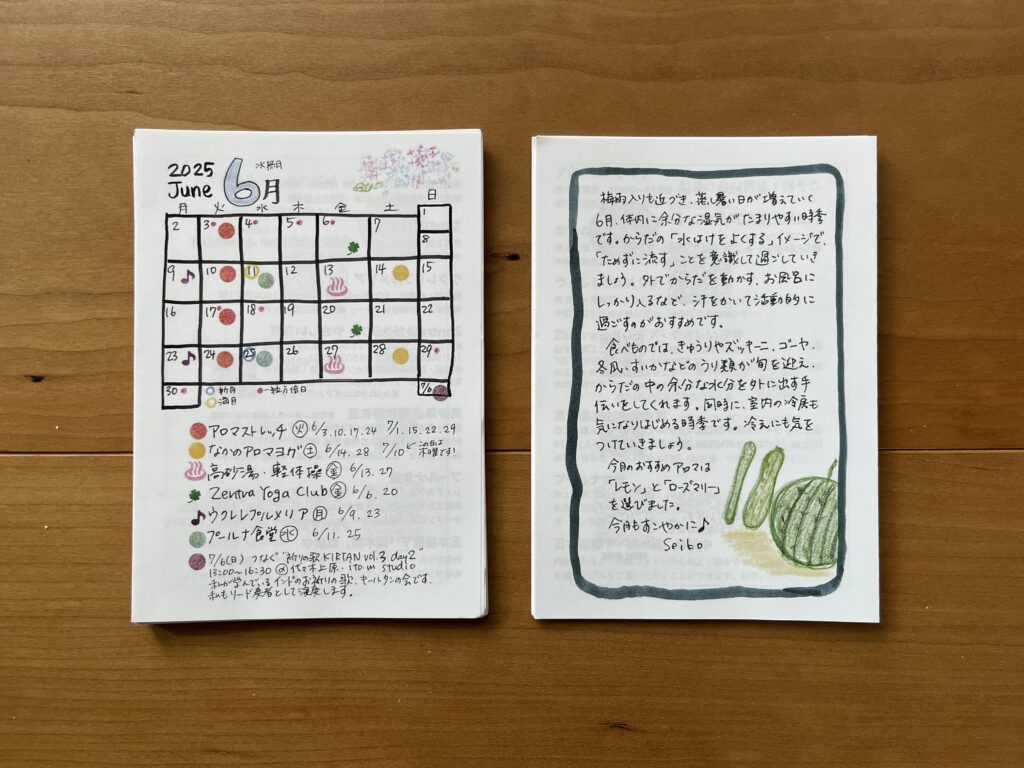 2025
June
6月
水無月
月 火 水 木 金 土 日
1
2 3 4 5 6 7 8
9 10 11 12 13 14 15
16 17 18 19 20 21 22
23 24 25 26 27 28 29
30 新月 一粒万倍日 7/6
満月
アロマストレッチ 火 6/3.10.17.24 7/1.15.22.29
なかのアロマヨガ 土 6/14.28 7/10 この日は木曜です!
高砂湯・軽体操 金 6/13.27
Zentra Yoga Club 金 6/6.20
ウクレレプルメリア 月 6/9.23
プールナ食堂 水 6/11.25
7/6(日) つなぐ "祈りの歌 KIRTAN vol.3 day2"
13:00〜16:30 @代々木上原・ito.m studio
私が学んでいるインドのお祈りの歌、キールタンの会です。
私もリード奏者として演奏します。
梅雨入りも近づき、蒸し暑い日が増えていく
6月、体内に余分な湿気がたまりやすい時季
です。からだの「水はけをよくする」イメージで、
「ためずに流す」ことを意識して過ごしていき
ましょう。外でからだを動かす、お風呂に
しっかり入るなど、汗をかいて活動的に
過ごすのがおすすめです。
食べものでは、きゅうりやズッキーニ、ゴーヤ、
冬瓜、すいかなどのうり類が旬を迎え、
からだの中の余分な水分を外に出す手
伝いをしてくれます。同時に、室内の冷房も
気になりはじめる時季です。冷えにも気を
つけていきましょう。
今月のおすすめアロマは
「レモン」と「ローズマリー」
を選びました。
今月もすこやかに♪
Seiko